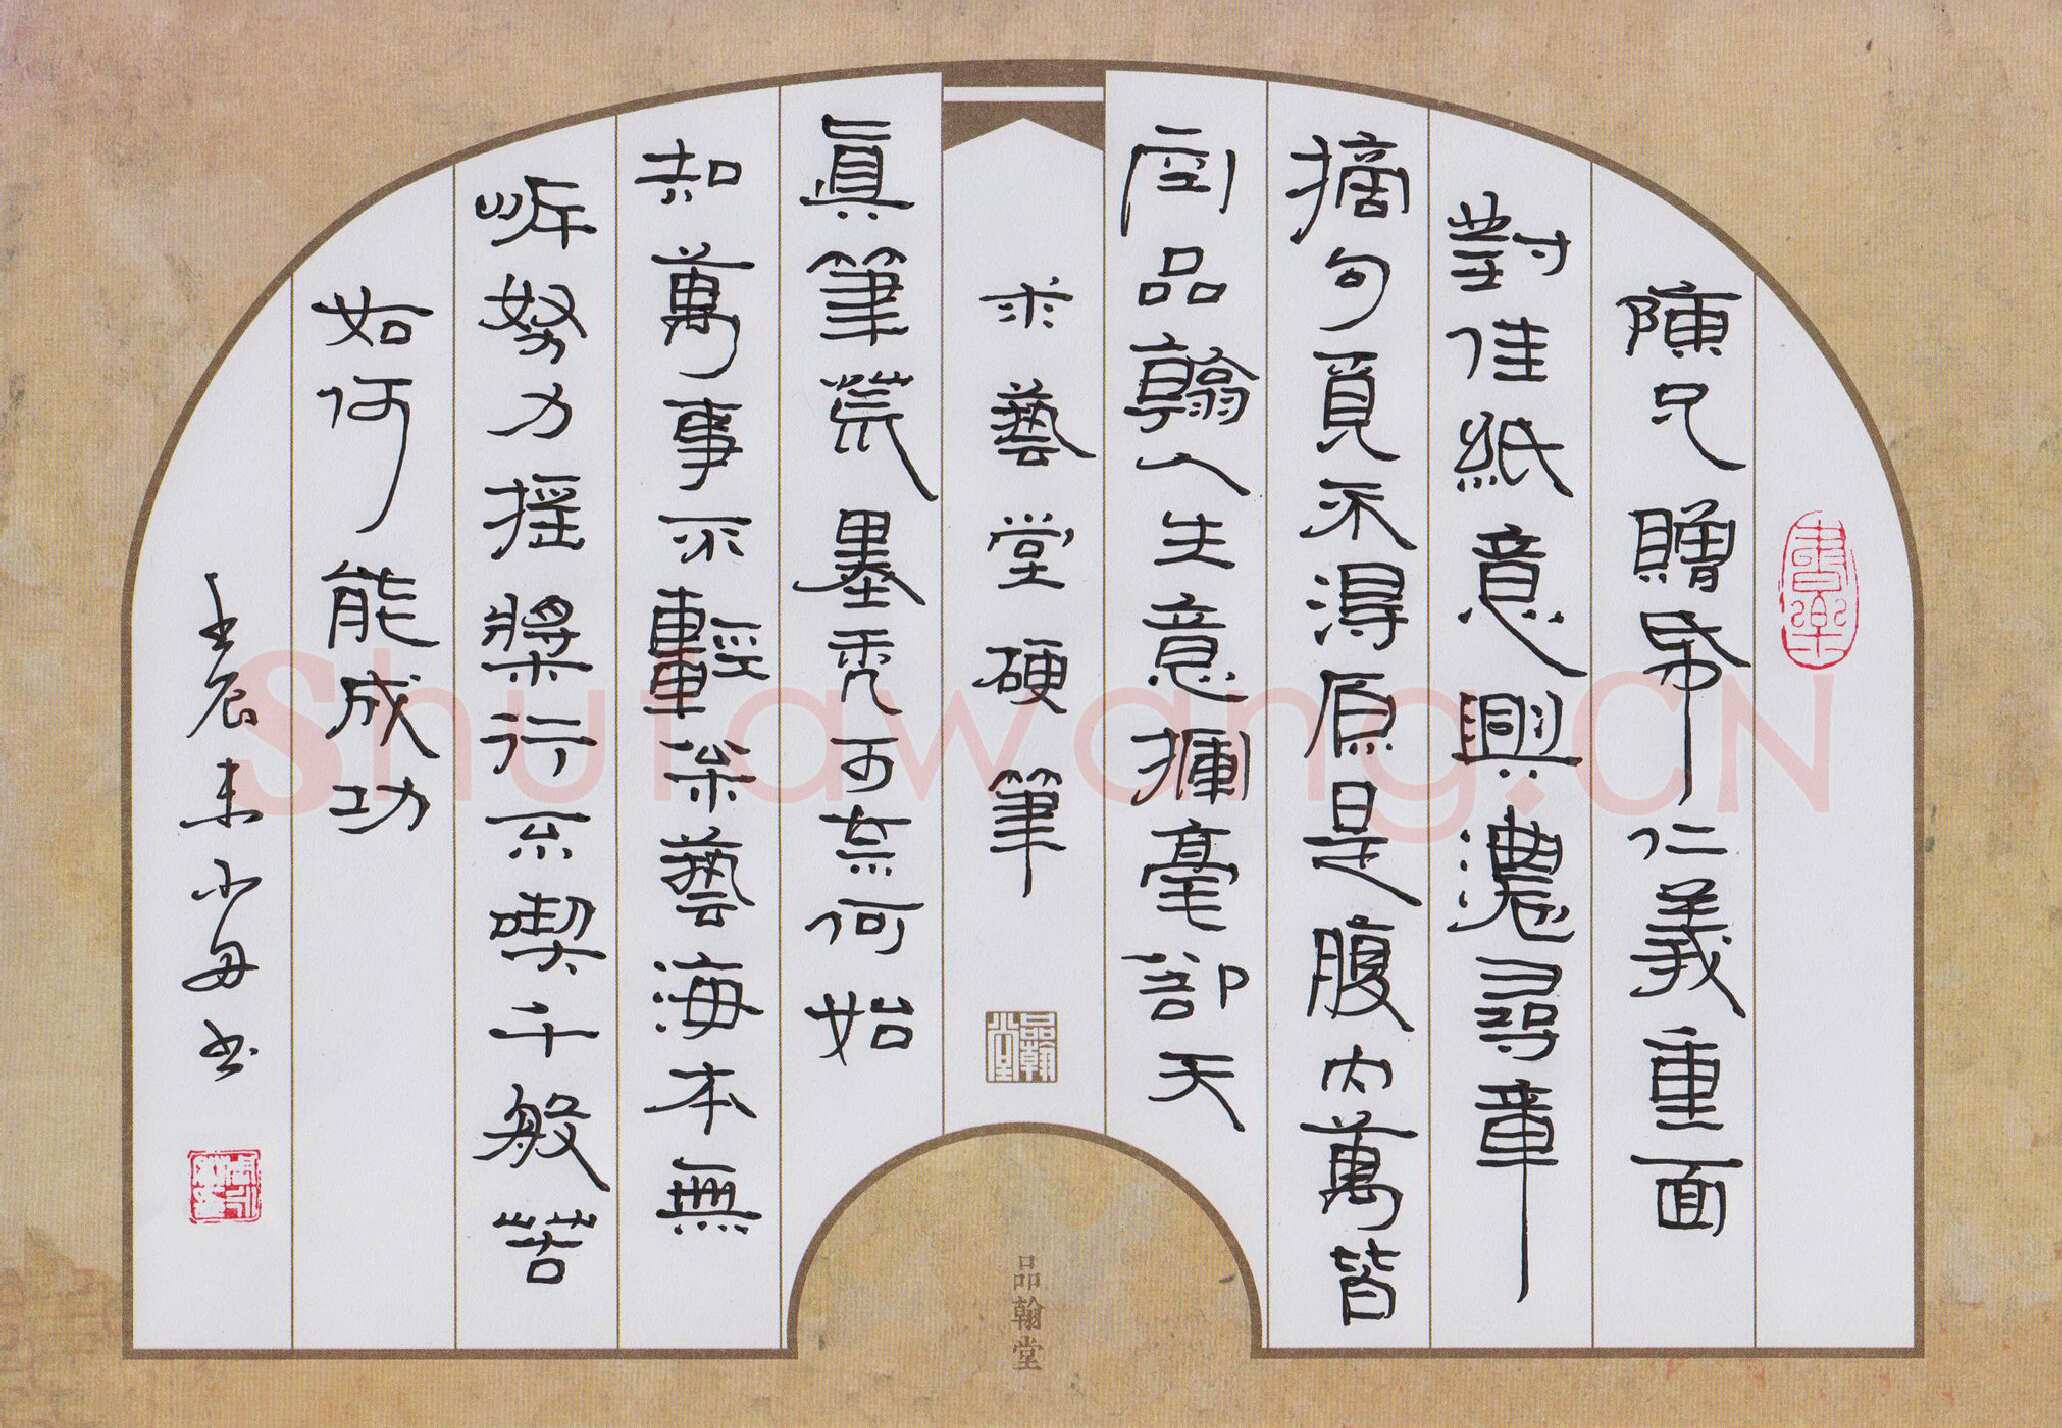 陳兄贈帋仁義重面
對佳紙意興濃尋章
摘句覓不得原是腹内萬皆
空品翰人生意揮毫部天
求藝堂硬筆
真筆荒墨秃可奈何始
知萬事不輕深藝海本無
岸努力摇槳行不喫千般苦
如何能成功
壬辰末小丑书
書樂
品翰堂
品翰堂
Shufawang.CN